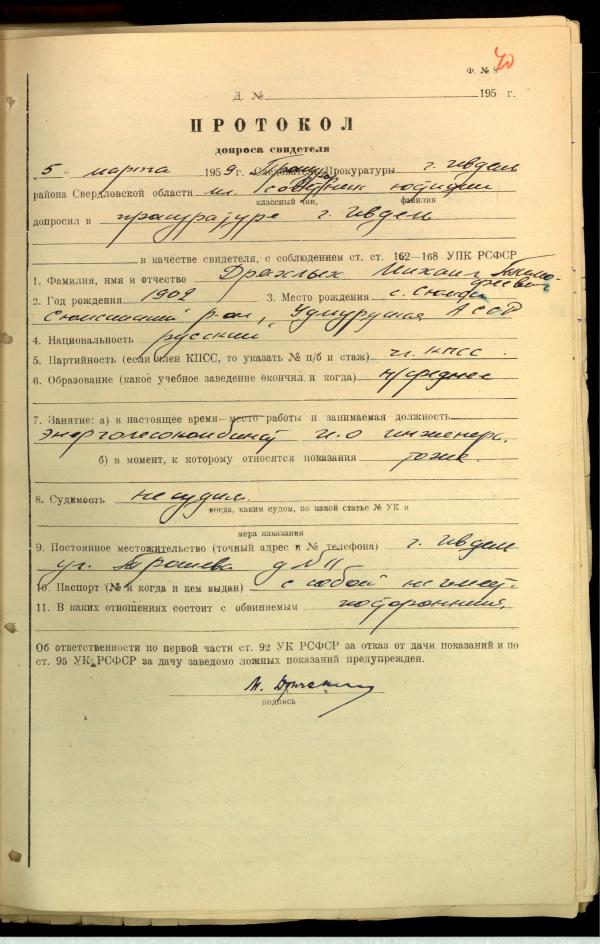 40
Ф. № 8
Д. № 195 г.
ПРОТОКОЛ
допроса свидетеля
„5" марта 1959 г. Прокурор Прокуратуры г. Ивдель
района Свердловской области мл. советник юстиции
классный чин, фамилия
допросил в прокуратуре г. Ивдель
в качестве свидетеля, с соблюдением ст. ст. 162—168 УПК РСФСР
1. Фамилия, имя и отчество Дряхлых Михаил Тимо-
феевич
2. Год рождения 1902 3. Место рождения с. Сюмси
Сюмсинский р-он, Удмуртская АССР
4. Национальность русский
5. Партийность (если член КПСС, то указать № п/б и стаж) чл. КПСС.
6. Образование (какое учебное заведение окончил и когда) н/среднее
7. Занятие: а) в настоящее время—место работы и занимаемая должность
Энерголесокомбинат и.о инженера.
б) в момент, к которому относятся показания тоже.
8. Судимость не судим.
когда, каким судом, по какой статье № УК и
мера наказания
9. Постоянное местожительство (точный адрес и № телефона) г. Ивдель
ул. Трошева д № 11
10. Паспорт (№ и когда и кем выдан) с собой не имеет.
11. В каких отношениях состоит с обвиняемым посторонний.
Об ответственности по первой части ст. 92 УК РСФСР за отказ от дачи показаний и по
ст. 95 УК РСФСР за дачу заведомо ложных показаний предупрежден.
подпись